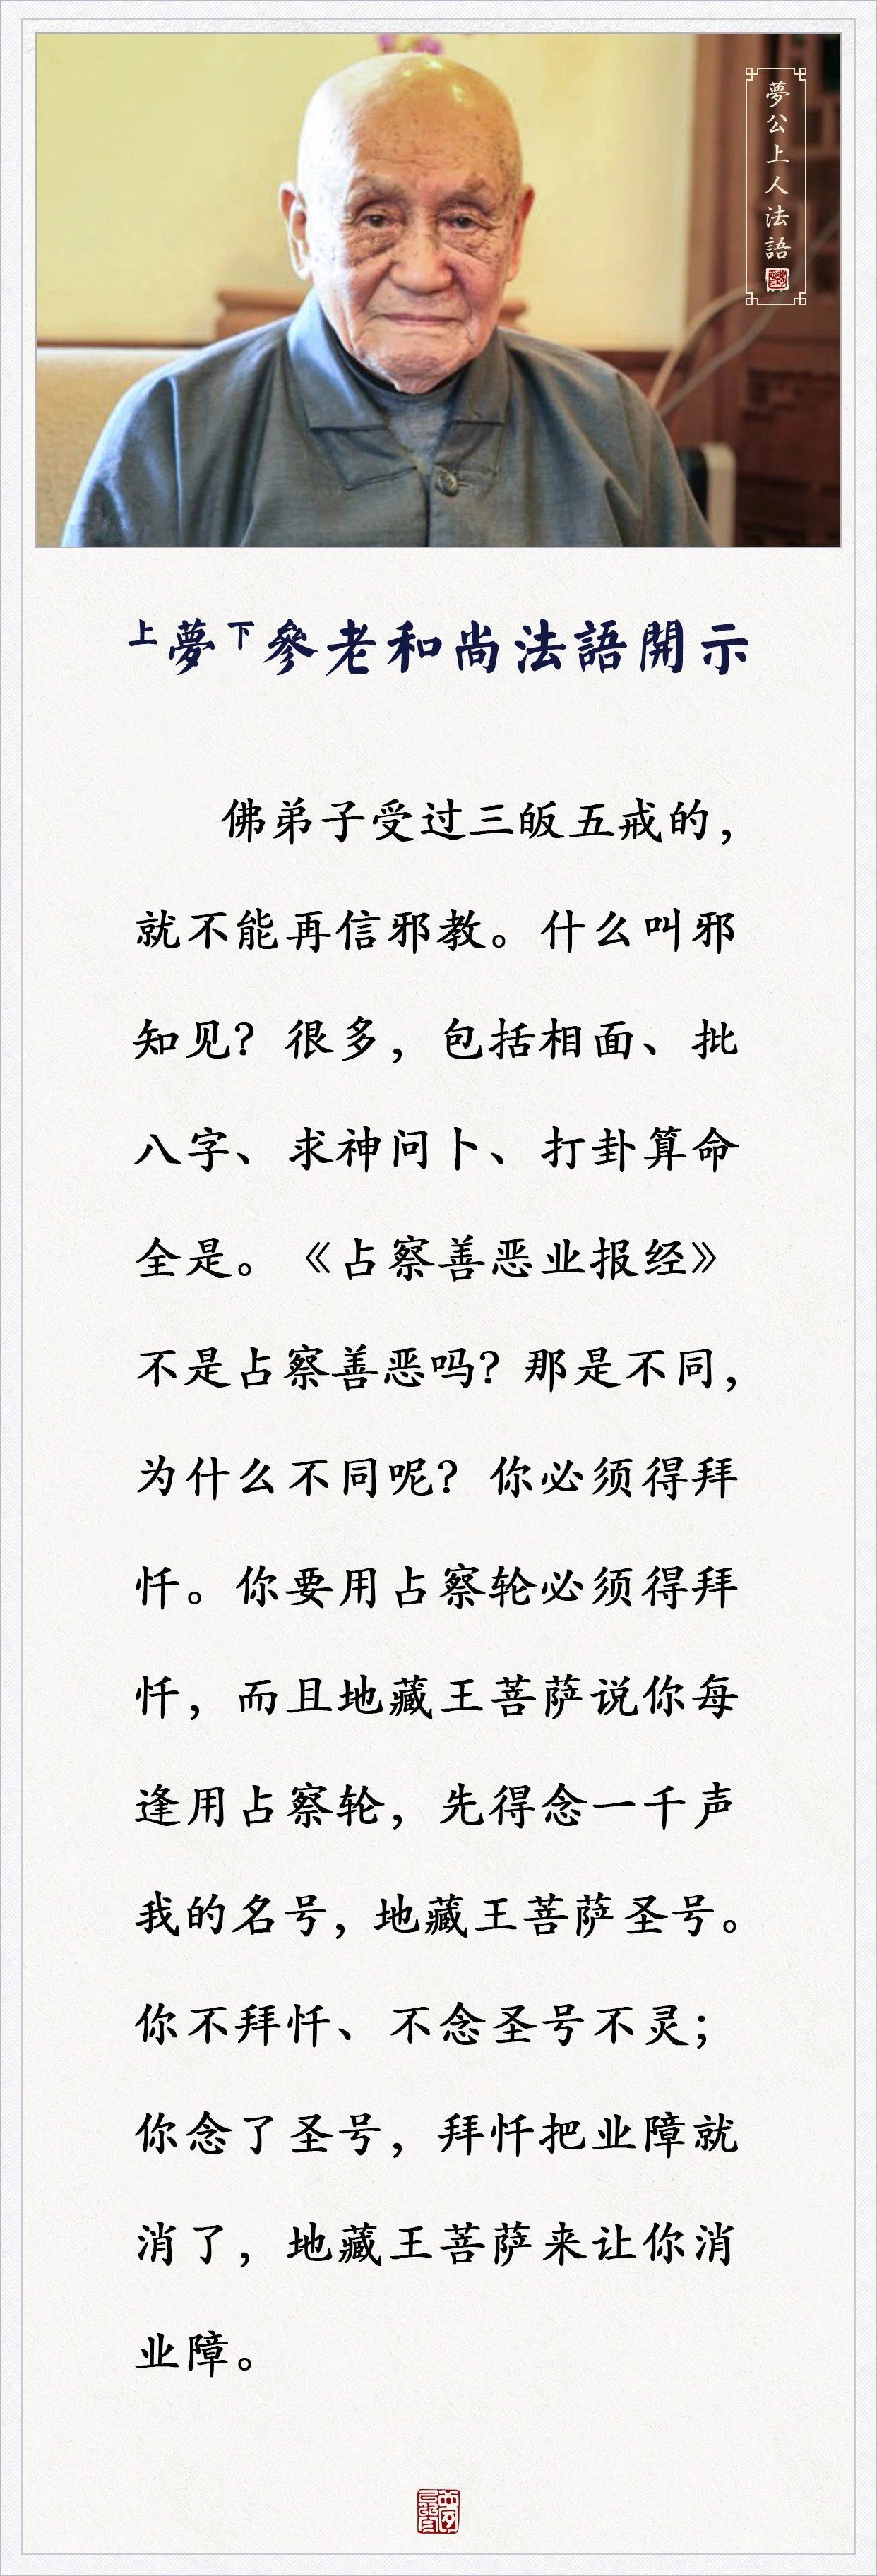 夢公上人法語
上夢下參老和尚法語開示
佛弟子受过三皈五戒的，
就不能再信邪教。什么叫邪
知见？很多，包括相面、批
八字、求神问卜、打卦算命
全是。《占察善恶业报经》
不是占察善恶吗？那是不同，
为什么不同呢？你必须得拜
忏。你要用占察轮必须得拜
忏，而且地藏王菩萨说你每
逢用占察轮，先得念一千声
我的名号，地藏王菩萨圣号。
你不拜忏、不念圣号不灵；
你念了圣号，拜忏把业障就
消了，地藏王菩萨来让你消
业障。